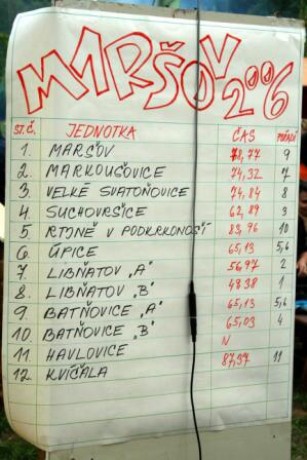 MARŠOV 2006
ST.Č. JEDNOTKA ČAS POŘADÍ
1. MARŠOV 78,77 9
2. MARKOUŠOVICE 74,32 7
3. VELKÉ SVATOŇOVICE 74,84 8
4. SUCHOVRŠICE 62,89 3
5 RTYNĚ V PODKRKONOŠÍ 83,96 10
6. ÚPICE 65,13 5,6
7. LIBŇATOV „A" 56,97 2
8. LIBŇATOV „B" 48,38 1
9. BATŇOVICE „A" 65,13 5,6
10. BATŇOVICE „B" 65,03 4
11. HAVLOVICE N
12. KVÍČALA 87,37 11